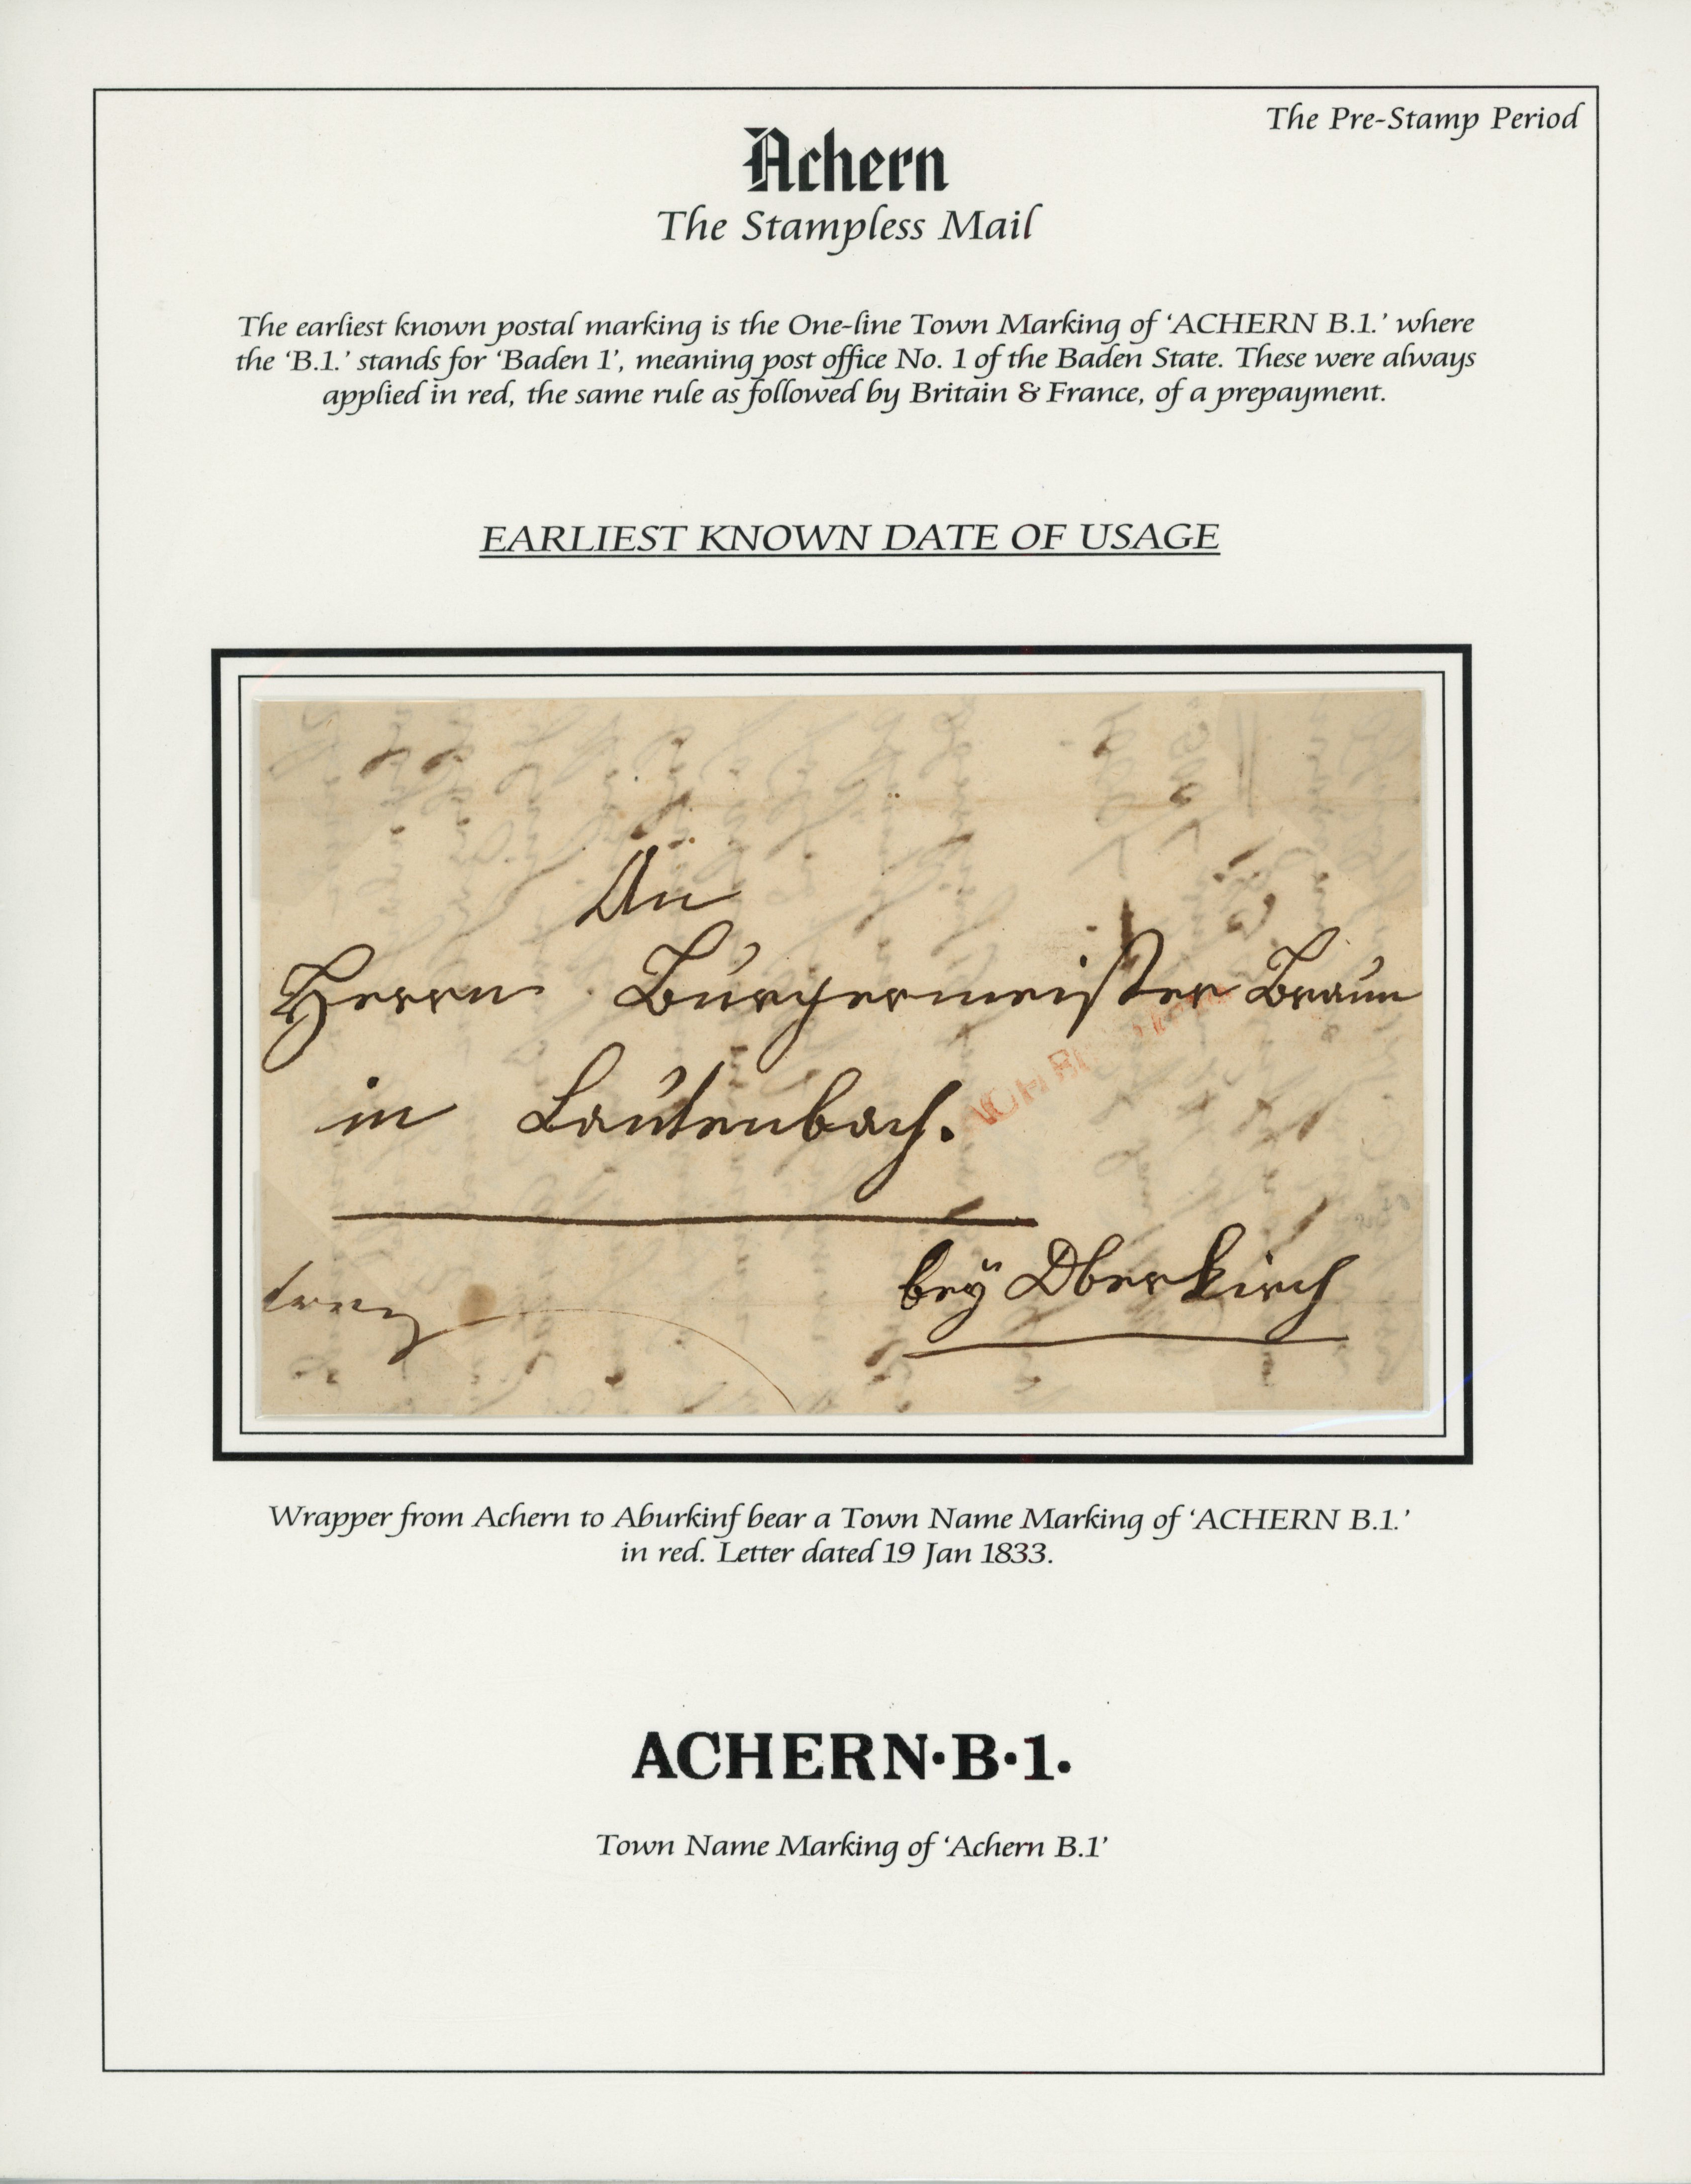 The Pre-Stamp Period
Achern
The Stampless Mail
The earliest known postal marking is the One-line Town Marking of ‘ACHERN B.1.’ where
the ‘B.1.’ stands for ‘Baden 1’, meaning post office No. 1 of the Baden State. These were always
applied in red, the same rule as followed by Britain & France, of a prepayment.
EARLIEST KNOWN DATE OF USAGE
An
Herrn Bürgermeister Braun
in Lautenbach.
bey Oberkirch
Wrapper from Achern to Aburkinf bear a Town Name Marking of ‘ACHERN B.1.’
in red. Letter dated 19 Jan 1833.
ACHERN·B·1.
Town Name Marking of ‘Achern B.1’